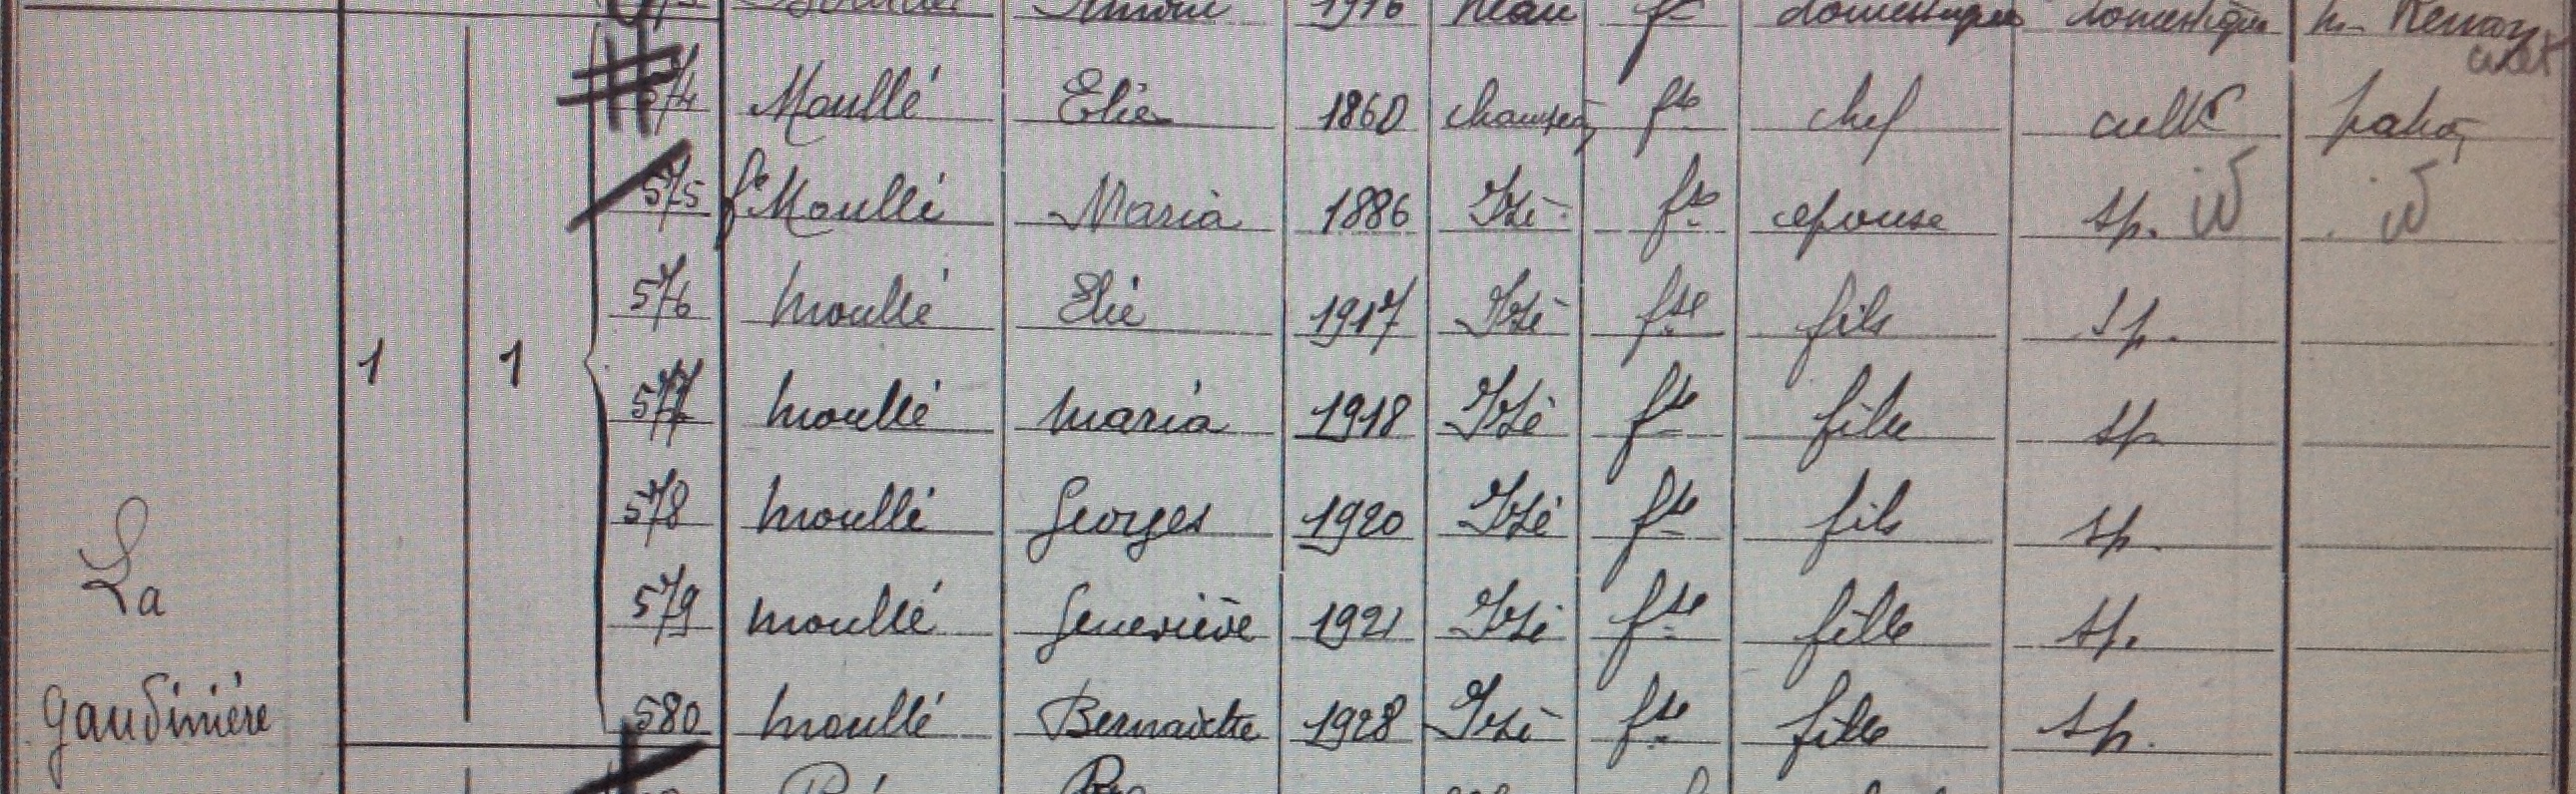 1916 domestique domestique
574 Moullé Elie 1860 fse chef cultr patron
575 fe Moullé Maria 1886 Izé fse épouse sp. id id
576 Moullé Elie 1917 Izé fse fils sp.
1 1 577 Moullé Maria 1918 Izé fse fille sp
578 Moullé Georges 1920 Izé fse fils sp.
La 579 Moullé Geneviève 1921 Izé fse fille sp.
Gaudinière 580 Moullé Bernadette 1928 Izé fse fille sp.